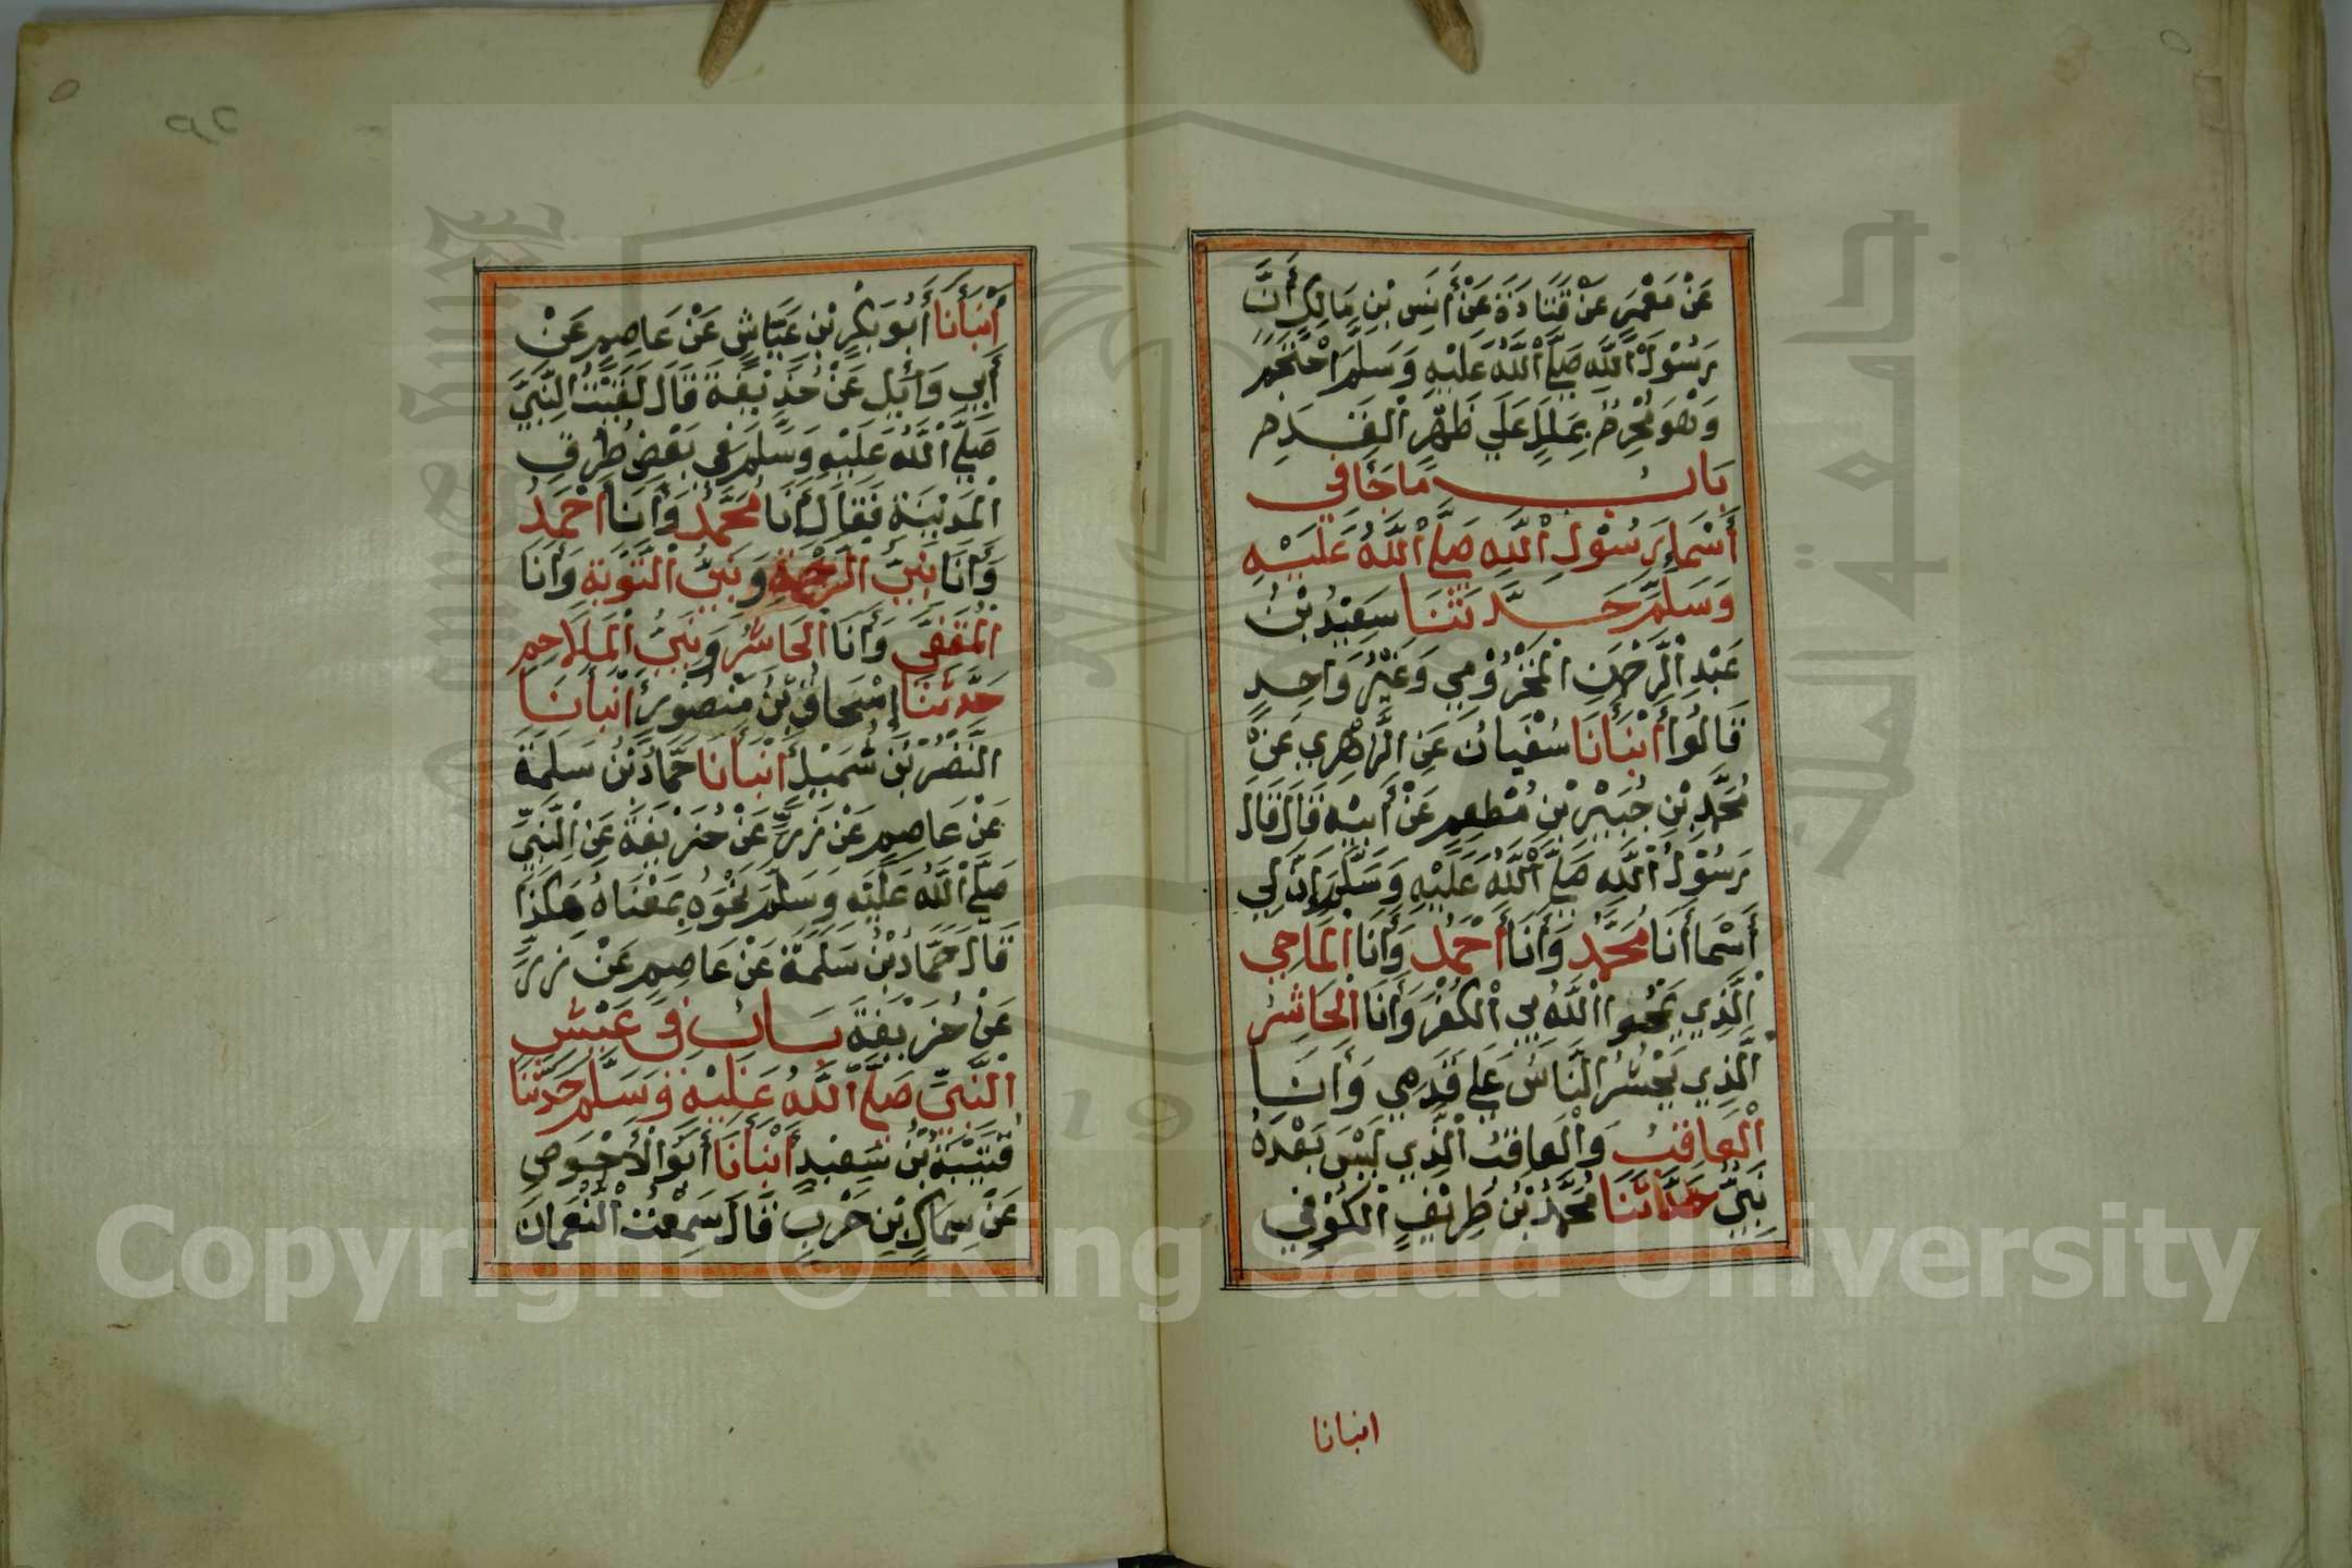 عَنْ مَعْمَرٍ عَنْ قَتَادَةَ عَنْ أَنَسِ بْنِ مَالِكٍ أَنَّ
رَسُوْلَ اللَّهِ صَلَّى اللَّهُ عَلَيْهِ وَسَلَّمَ احْتَجَمَ
وَهُوَ مُحْرِمٌ بِمَلَلٍ عَلَي ظَهْرِ الْقَدَمِ
بَابُ مَا جَا فِي
أَسْمَاءِ رَسُوْلِ اللَّهِ صَلَّى اللَّهُ عَلَيْهِ
وَسَلَّمَ حَدَّثَنَا سَعِيْدُ بْنُ
عَبْدِ الرَّحْمَنِ الْمَخْزُوْمِي وَغَيْرُ وَاحِدٍ
قَالُوا أَنْبَأَنَا سُفْيَانُ عَنِ الزُّهْرِي عَنْ
مُحَمَّدِ بْنِ جُبَيْرِ بْنِ مُطْعِمٍ عَنْ أَبِيْهِ قَالَ قَالَ
رَسُوْلُ اللَّهِ صَلَّى اللَّهُ عَلَيْهِ وَسَلَّمَ إِنَّ لِي
أَسْمَا أَنَا مُحَمَّدٌ وَأَنَا أَحْمَدُ وَأَنَا الْمَاحِي
الَّذِي يَمْحُوا اللَّهُ بِي الْكُفْرَ وَأَنَا الْحَاشِرُ
الَّذِي يُحْشَرُ النَّاسُ عَلَي قَدَمِي وَأَنَا
الْعَاقِبُ وَالْعَاقِبُ الَّذِي لَيْسَ بَعْدَهُ
نَبِيٌّ حَدَّثَنَا مُحَمَّدُ بْنُ طَرِيْفٍ الْكُوْفِي
انبانا
أَنْبَأَنَا أَبُو بَكْرِ بْنِ عَيَّاشٍ عَنْ عَاصِمٍ عَنْ
أَبِي وَائِلٍ عَنْ حُذَيْفَةَ قَالَ لَقِيْتُ النَّبِيَّ
صَلَّى اللَّهُ عَلَيْهِ وَسَلَّمَ فِي بَعْضِ طُرُقِ
الْمَدِيْنَةِ فَقَالَ أَنَا مُحَمَّدٌ وَأَنَا أَحْمَدُ
وَأَنَا نَبِيُّ الرَّحْمَةِ وَنَبِيُّ التَّوْبَةِ وَأَنَا
الْمُقَفَّي وَأَنَا الْحَاشِرُ وَنَبِيُّ الْمَلَاحِمِ
حَدَّثَنَا إِسْحَاقُ بْنُ مَنْصُوْرٍ أَنْبَأَنَا
النَّضْرُ بْنُ شُمَيْلٍ أَنْبَأَنَا حَمَّادُ بْنُ سَلَمَةَ
عَنْ عَاصِمٍ عَنْ زِرٍّ عَنْ حُذَيْفَةَ عَنِ النَّبِيِّ
صَلَّى اللَّهُ عَلَيْهِ وَسَلَّمَ نَحْوَهُ بِمَعْنَاهُ هَكَذَا
قَالَ حَمَّادُ بْنُ سَلَمَةَ عَنْ عَاصِمٍ عَنْ زِرٍّ
عَنْ حُذَيْفَةَ بَابُ فِي عَيْشِ
النَّبِيِّ صَلَّى اللَّهُ عَلَيْهِ وَسَلَّمَ حَدَّثَنَا
قُتَيْبَةُ بْنُ سَعِيْدٍ أَنْبَأَنَا أَبُو الْأَحْوَصِ
عَنْ سِمَاكِ بْنِ حَرْبٍ قَالَ سَمِعْتُ النُّعْمَانَ
Copyright © King Saud University